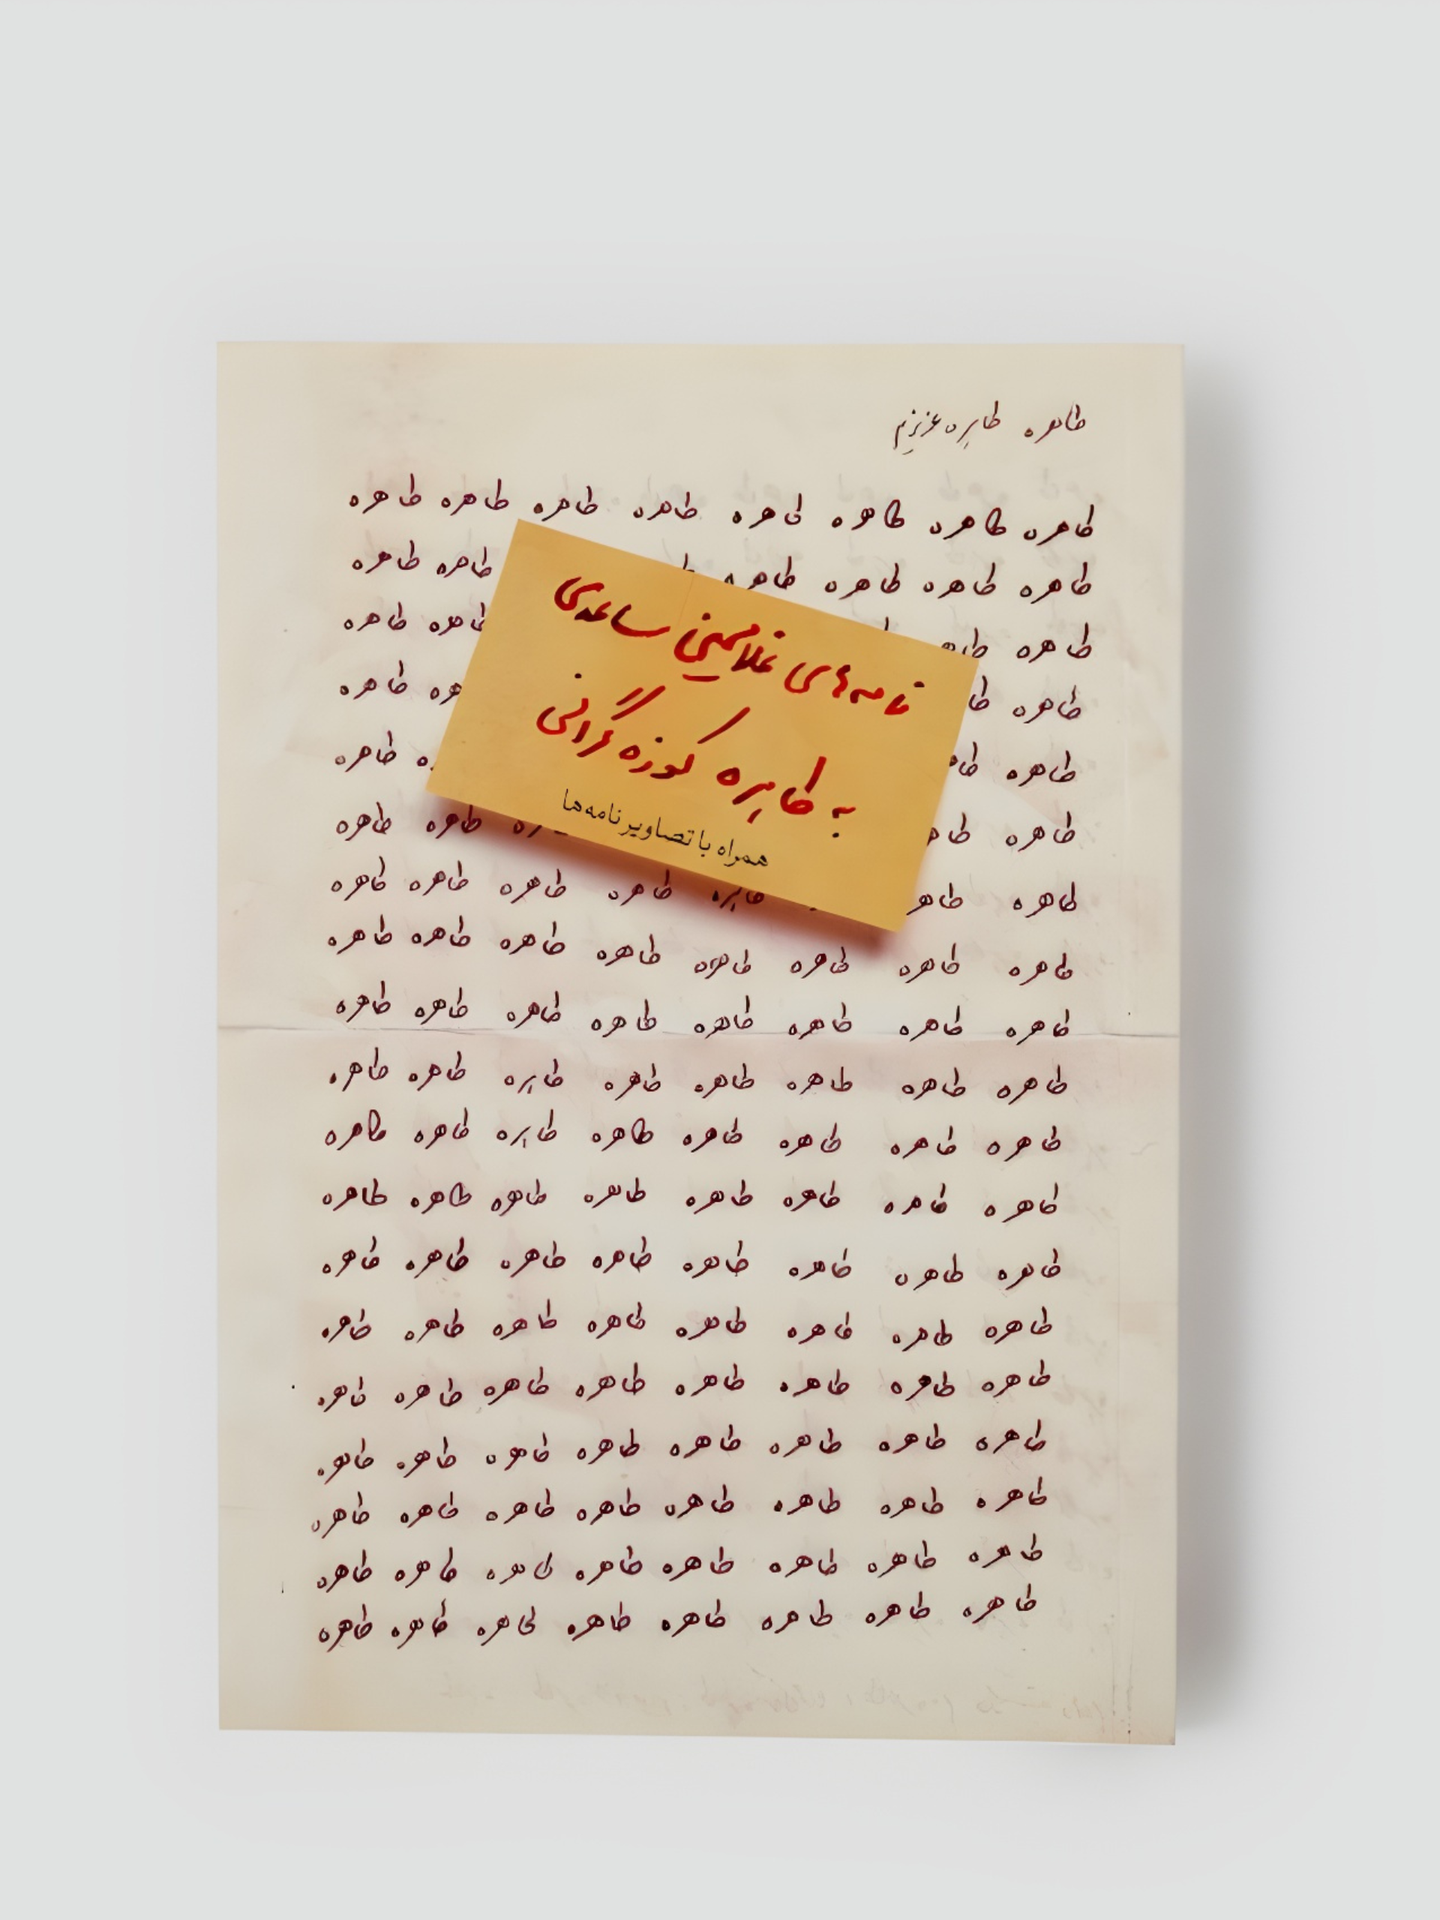 طاهره طاهره عزیزم
طاهره طاهره طاهره طاهره طاهره طاهره طاهره طاهره
طاهره طاهره طاهره طاهره طاهره طاهره
طاهره طاهره طاهره
طاهره طاهره
طاهره طاهره
طاهره طاهره طاهره
طاهره طاهره طاهره طاهره طاهره طاهره
طاهره طاهره طاهره طاهره طاهره طاهره طاهره طاهره
طاهره طاهره طاهره طاهره طاهره طاهره طاهره طاهره
طاهره طاهره طاهره طاهره طاهره طاهره طاهره طاهره
طاهره طاهره طاهره طاهره طاهره طاهره طاهره طاهره
طاهره طاهره طاهره طاهره طاهره طاهره طاهره طاهره
طاهره طاهره طاهره طاهره طاهره طاهره طاهره طاهره
طاهره طاهره طاهره طاهره طاهره طاهره طاهره طاهره
طاهره طاهره طاهره طاهره طاهره طاهره طاهره طاهره
طاهره طاهره طاهره طاهره طاهره طاهره طاهره طاهره
طاهره طاهره طاهره طاهره طاهره طاهره طاهره طاهره
طاهره طاهره طاهره طاهره طاهره طاهره طاهره طاهره
طاهره طاهره طاهره طاهره طاهره طاهره طاهره طاهره
نامه‌های غلامحسین ساعدی
به طاهره کوزه‌گرانی
همراه با تصاویر نامه‌ها